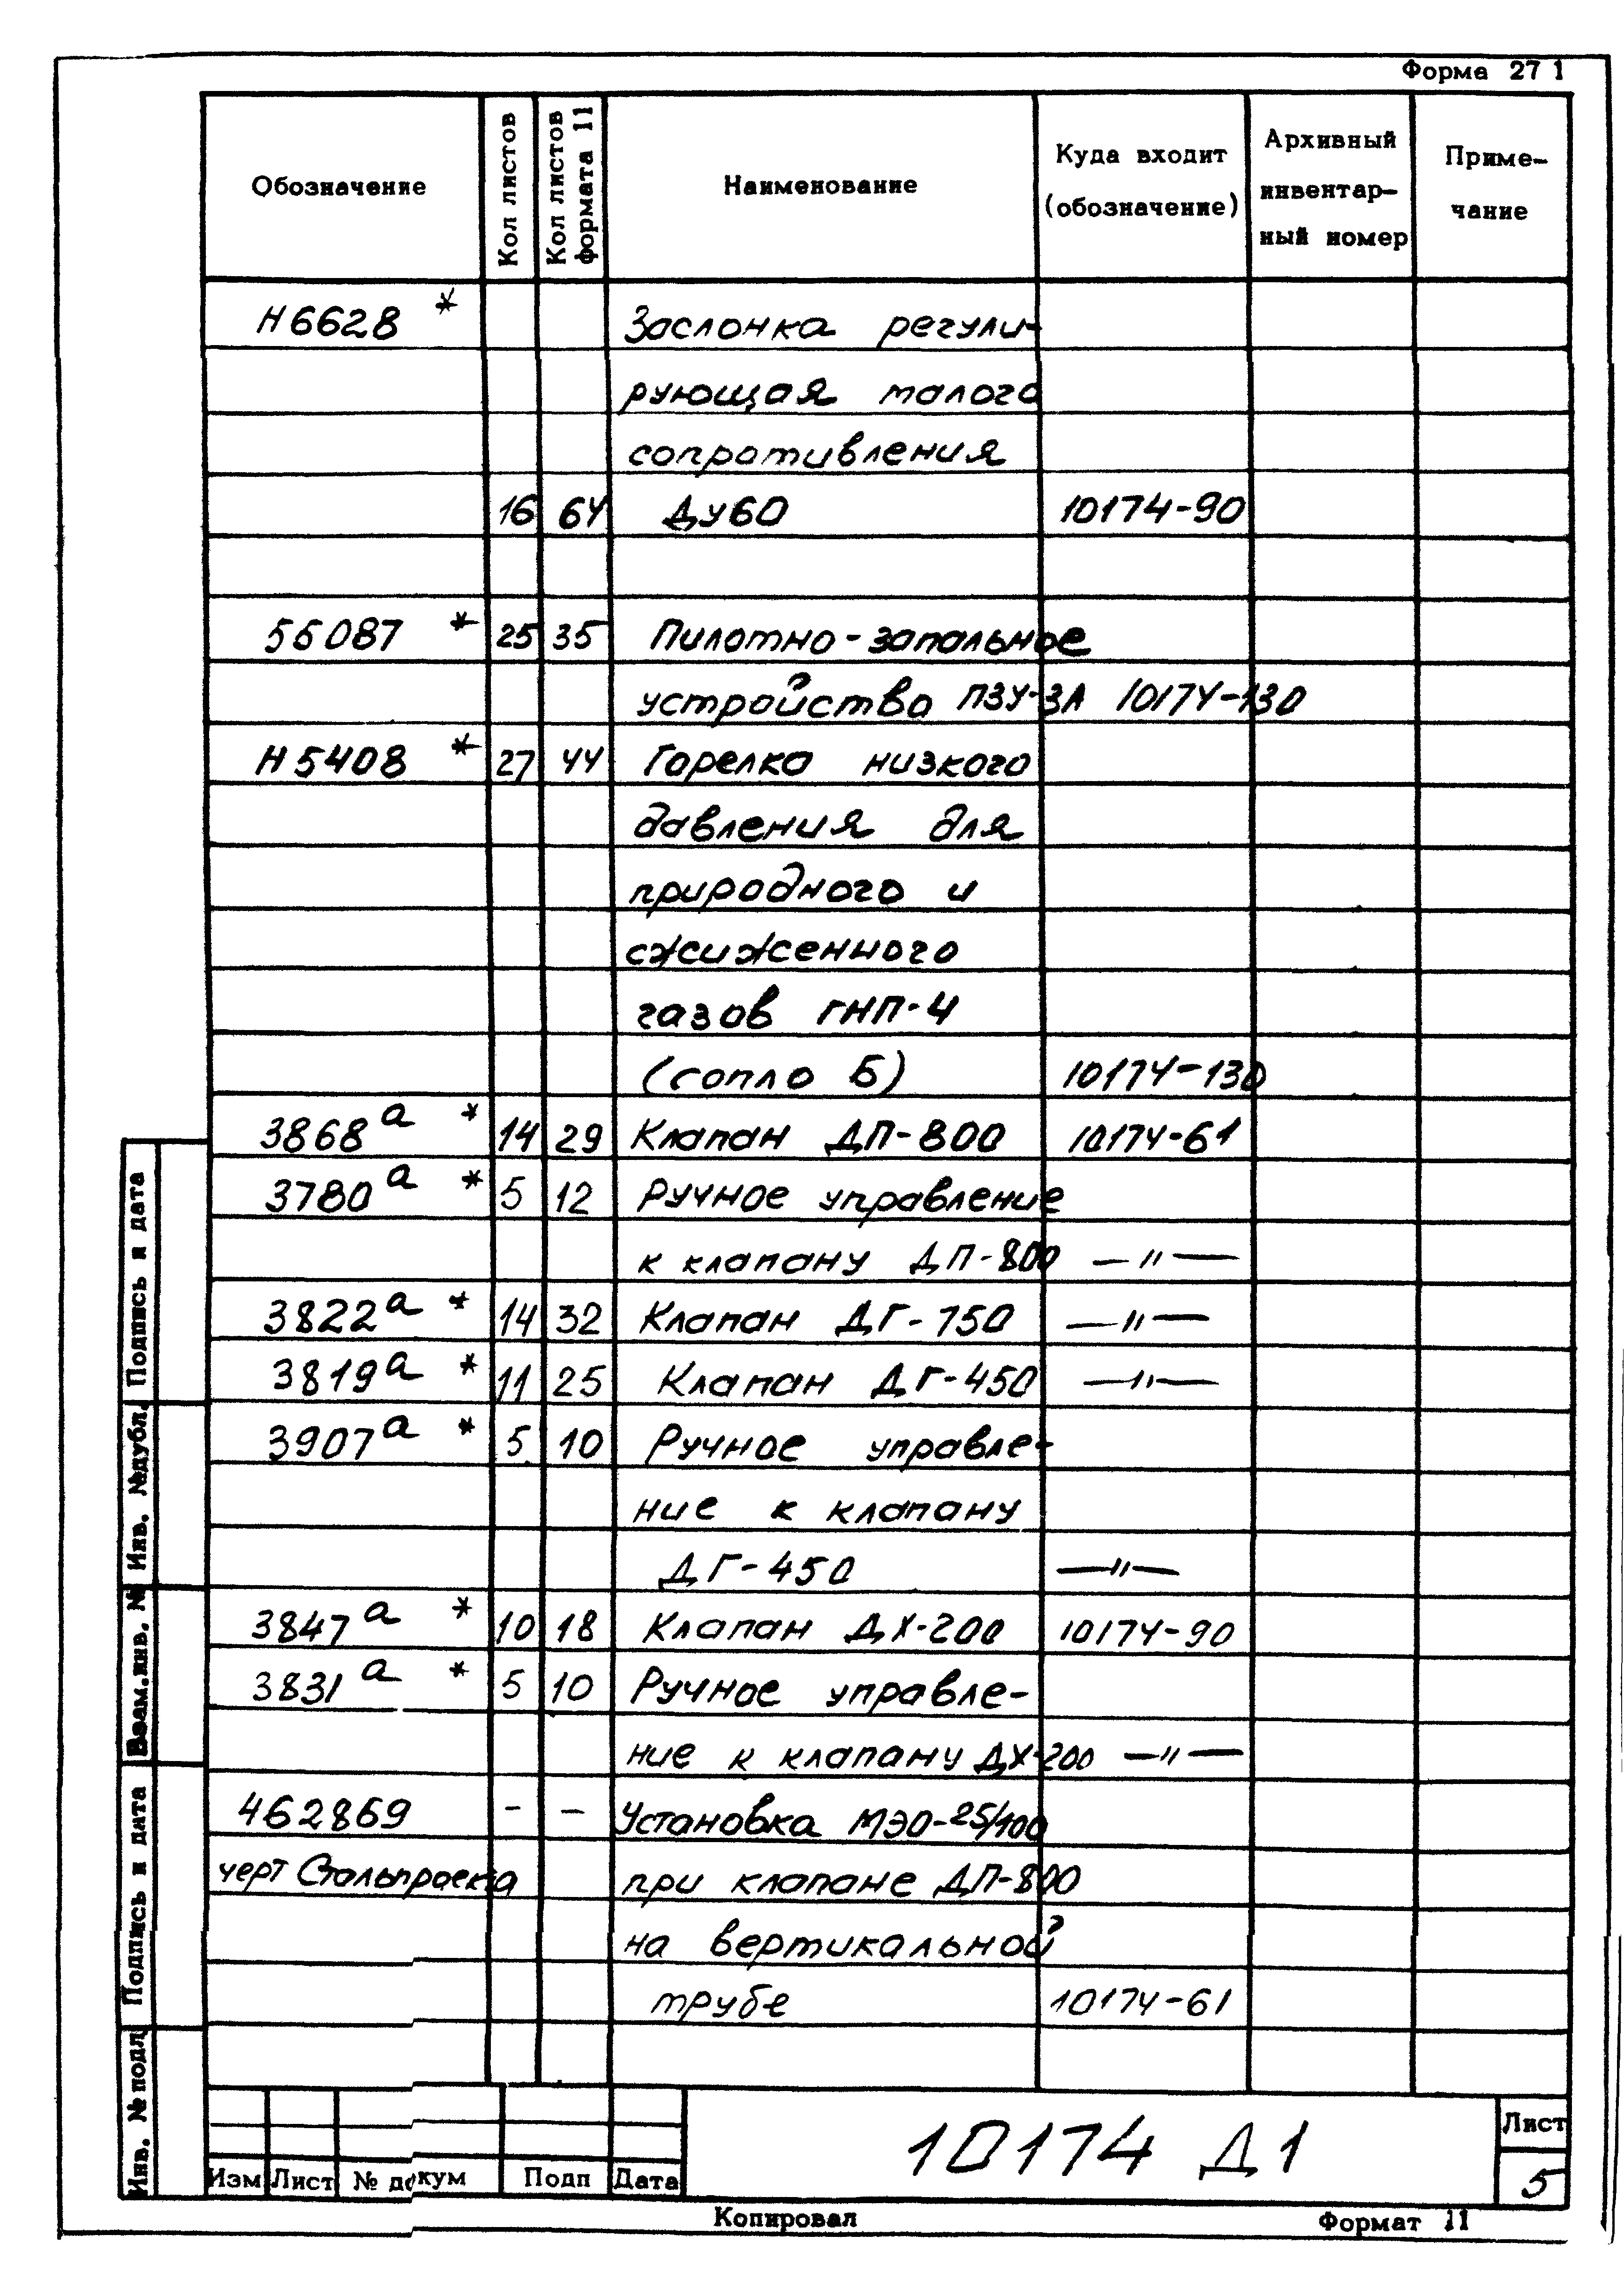 Форма 27 1
Обозначение
Кол листов
Кол листов формата 11
Наименование
Куда входит (обозначение)
Архивный инвентар- ный номер
Приме- чание
Н6628 * Заслонка регули-
рующая малого
сопротивления
16 64 Ду60 10174-90
55087 * 25 35 Пилотно-запальное
устройство ПЗУ-3А 10174-130
Н5408 * 27 44 Горелка низкого
давления для
природного и
сжиженного
газов ГНП-4
(сопло Б) 10174-130
3868а * 14 29 Клапан ДП-800 10174-61
3780а * 5 12 Ручное управление
к клапану ДП-800 —"—
3822а * 14 32 Клапан ДГ-750 —"—
3819а * 11 25 Клапан ДГ-450 —"—
3907а * 5 10 Ручное управле-
ние к клапану
ДГ-450 —"—
3847а * 10 18 Клапан ДХ-200 10174-90
3831а * 5 10 Ручное управле-
ние к клапану ДХ-200 —"—
462869 - - Установка МЭО-25/100
черт Стальпроекта при клапане ДП-800
на вертикальной
трубе 10174-61
Подпись и дата
Инв. №дубл.
Взам.инв. №
Подпись и дата
Инв. № подл
Изм Лист № докум Подп Дата
10174 Д1
Лист
5
Копировал
Формат 11